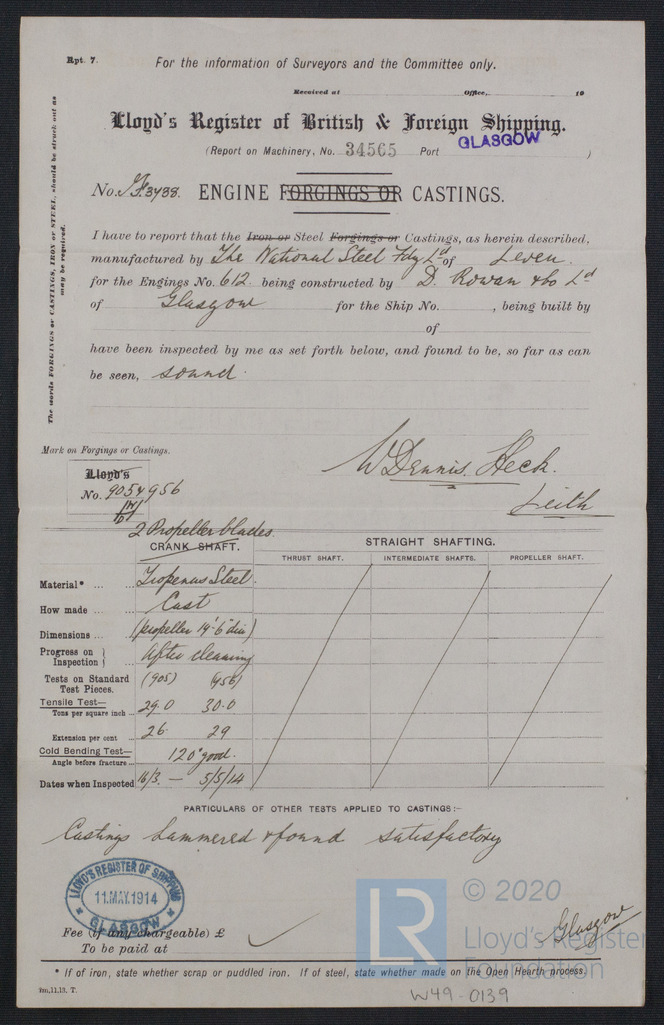 Rpt. 7.
For the information of Surveyors and the Committee only.
Received at Office, 19
Lloyd's Register of British & Foreign Shipping.
(Report on Machinery, No. 34565 Port GLASGOW )
No. F.3438. ENGINE FORGINGS OR CASTINGS.
The words FORGINGS or CASTINGS, IRON or STEEL, should be struck out as
may be required.
I have to report that the Iron or Steel Forgings or Castings, as herein described,
manufactured by The National Steel Fdy Ld of Leven.
for the Engines No. 612 being constructed by D. Rowan & Co Ld
of Glasgow for the Ship No. , being built by
of
have been inspected by me as set forth below, and found to be, so far as can
be seen, sound.
Mark on Forgings or Castings.
W Dennis Heck.
Leith
Lloyd's
No. 905 & 956
2 Propeller blades
CRANK SHAFT.
STRAIGHT SHAFTING.
THRUST SHAFT. INTERMEDIATE SHAFTS. PROPELLER SHAFT.
Material* ... Steel.
How made ... Cast
Dimensions ... (propeller 14'-6" dia)
Progress on Inspection After cleaning
Tests on Standard Test Pieces. (905) (956)
Tensile Test— Tons per square inch ... 29.0 30.0
Extension per cent 26. 29
Cold Bending Test— Angle before fracture... 120° good.
Dates when Inspected 16/3. — 5/5/14
PARTICULARS OF OTHER TESTS APPLIED TO CASTINGS:-
Castings hammered & found satisfactory
LLOYD'S REGISTER OF SHIPPING
11.MAY.1914
GLASGOW
Fee (if any chargeable) £
To be paid at
Glasgow
LR
© 2020
Lloyd's Register
Foundation
* If of iron, state whether scrap or puddled iron. If of steel, state whether made on the Open Hearth process.
2m,11,13. T.
W49-0139